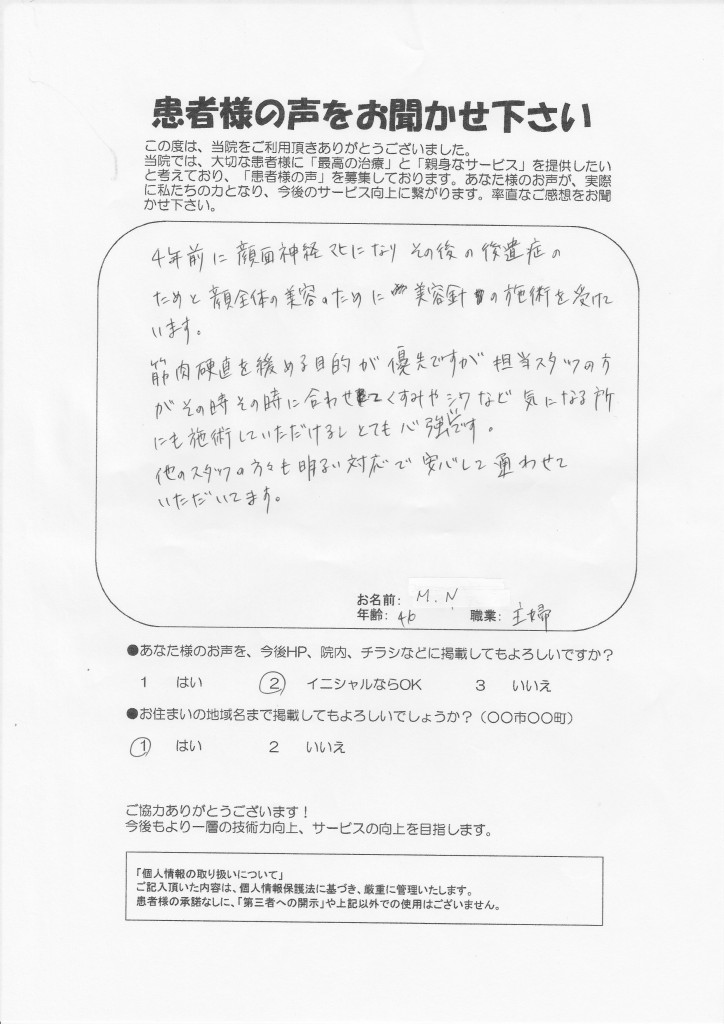 患者様の声をお聞かせ下さい
この度は、当院をご利用頂きありがとうございました。
当院では、大切な患者様に「最高の治療」と「親身なサービス」を提供したい
と考えており、「患者様の声」を募集しております。あなた様のお声が、実際
に私たちの力となり、今後のサービス向上に繋がります。率直なご感想をお聞
かせ下さい。
4年前に顔面神経マヒになりその後の後遺症の
ためと顔全体の美容のために美容針の施術を受けて
います。
筋肉硬直を緩める目的が優先ですが担当スタッフの方
がその時その時に合わせてくすみやシワなど気になる所
にも施術していただけるしとても心強いです。
他のスタッフの方々も明るい対応で安心して通わせて
いただいてます。
お名前: M.N
年齢: 46 職業: 主婦
●あなた様のお声を、今後HP、院内、チラシなどに掲載してもよろしいですか？
1 はい ② イニシャルならOK 3 いいえ
●お住まいの地域名まで掲載してもよろしいでしょうか？（〇〇市〇〇町）
① はい 2 いいえ
ご協力ありがとうございます！
今後もより一層の技術力向上、サービスの向上を目指します。
「個人情報の取り扱いについて」
ご記入頂いた内容は、個人情報保護法に基づき、厳重に管理いたします。
患者様の承諾なしに、「第三者への開示」や上記以外での使用はございません。